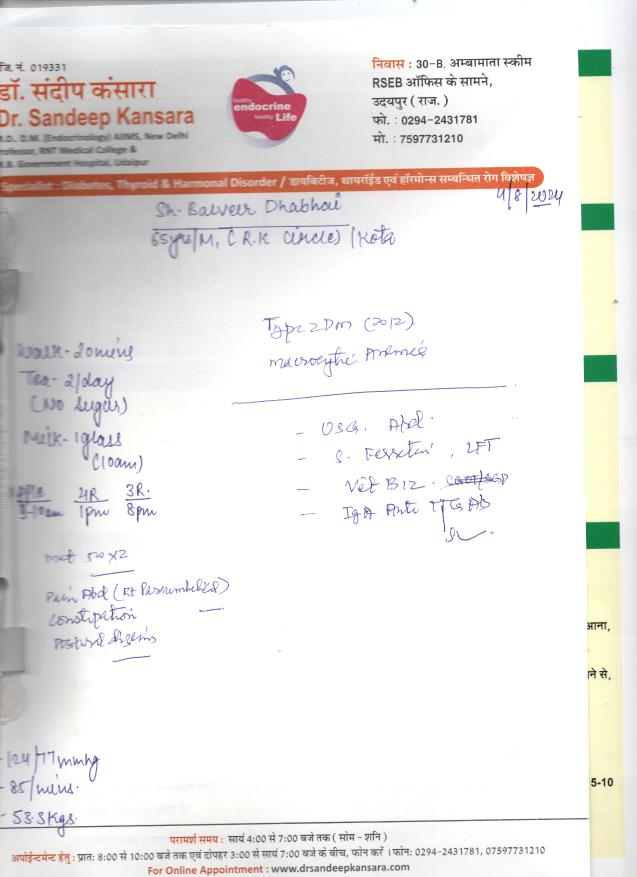 जि. नं. 019331
डॉ. संदीप कंसारा
Dr. Sandeep Kansara
M.D.. D.M. (Endocrinology) AIIMS, New Delhi
Professor, RNT Medical College &
M.B. Government Hospital, Udaipur
healthy
endocrine
healthy Life
निवास : 30-B, अम्बामाता स्कीम
RSEB ऑफिस के सामने,
उदयपुर ( राज. )
फो. : 0294-2431781
मो. : 7597731210
Specialist : Diabetes, Thyroid & Harmonal Disorder / डायबिटीज, थायरॉईड एवं हॉरमोन्स सम्बन्धित रोग विशेषज्ञ
4/8/2024
Sh. Balveer Dhabhai
65yrs/M, (R.K Circle) /Kota
Type 2 DM (2012)
Macrocytic Anemia
Walk - 20mins
Tea - 2/day
(No Sugar)
Milk - 1glass
(10am)
4R 3R.
9-10am 1pm 8pm
Met 500 x 2
Pain Abd (Rt Paraumbelical)
Constipation
Postural
- USG. Abd.
- S. Ferretin, LFT
- Vit B12.
- IgA Anti TTG AB
124/77 mmHg
- 85/mins.
- 53.3 Kgs.
आना,
ने से,
5-10
परामर्श समय : सायं 4:00 से 7:00 बजे तक ( सोम - शनि )
अपोईन्टमेन्ट हेतु : प्रात: 8:00 से 10:00 बजे तक एवं दोपहर 3:00 से सायं 7:00 बजे के बीच, फोन करें । फोन: 0294-2431781, 07597731210
For Online Appointment : www.drsandeepkansara.com